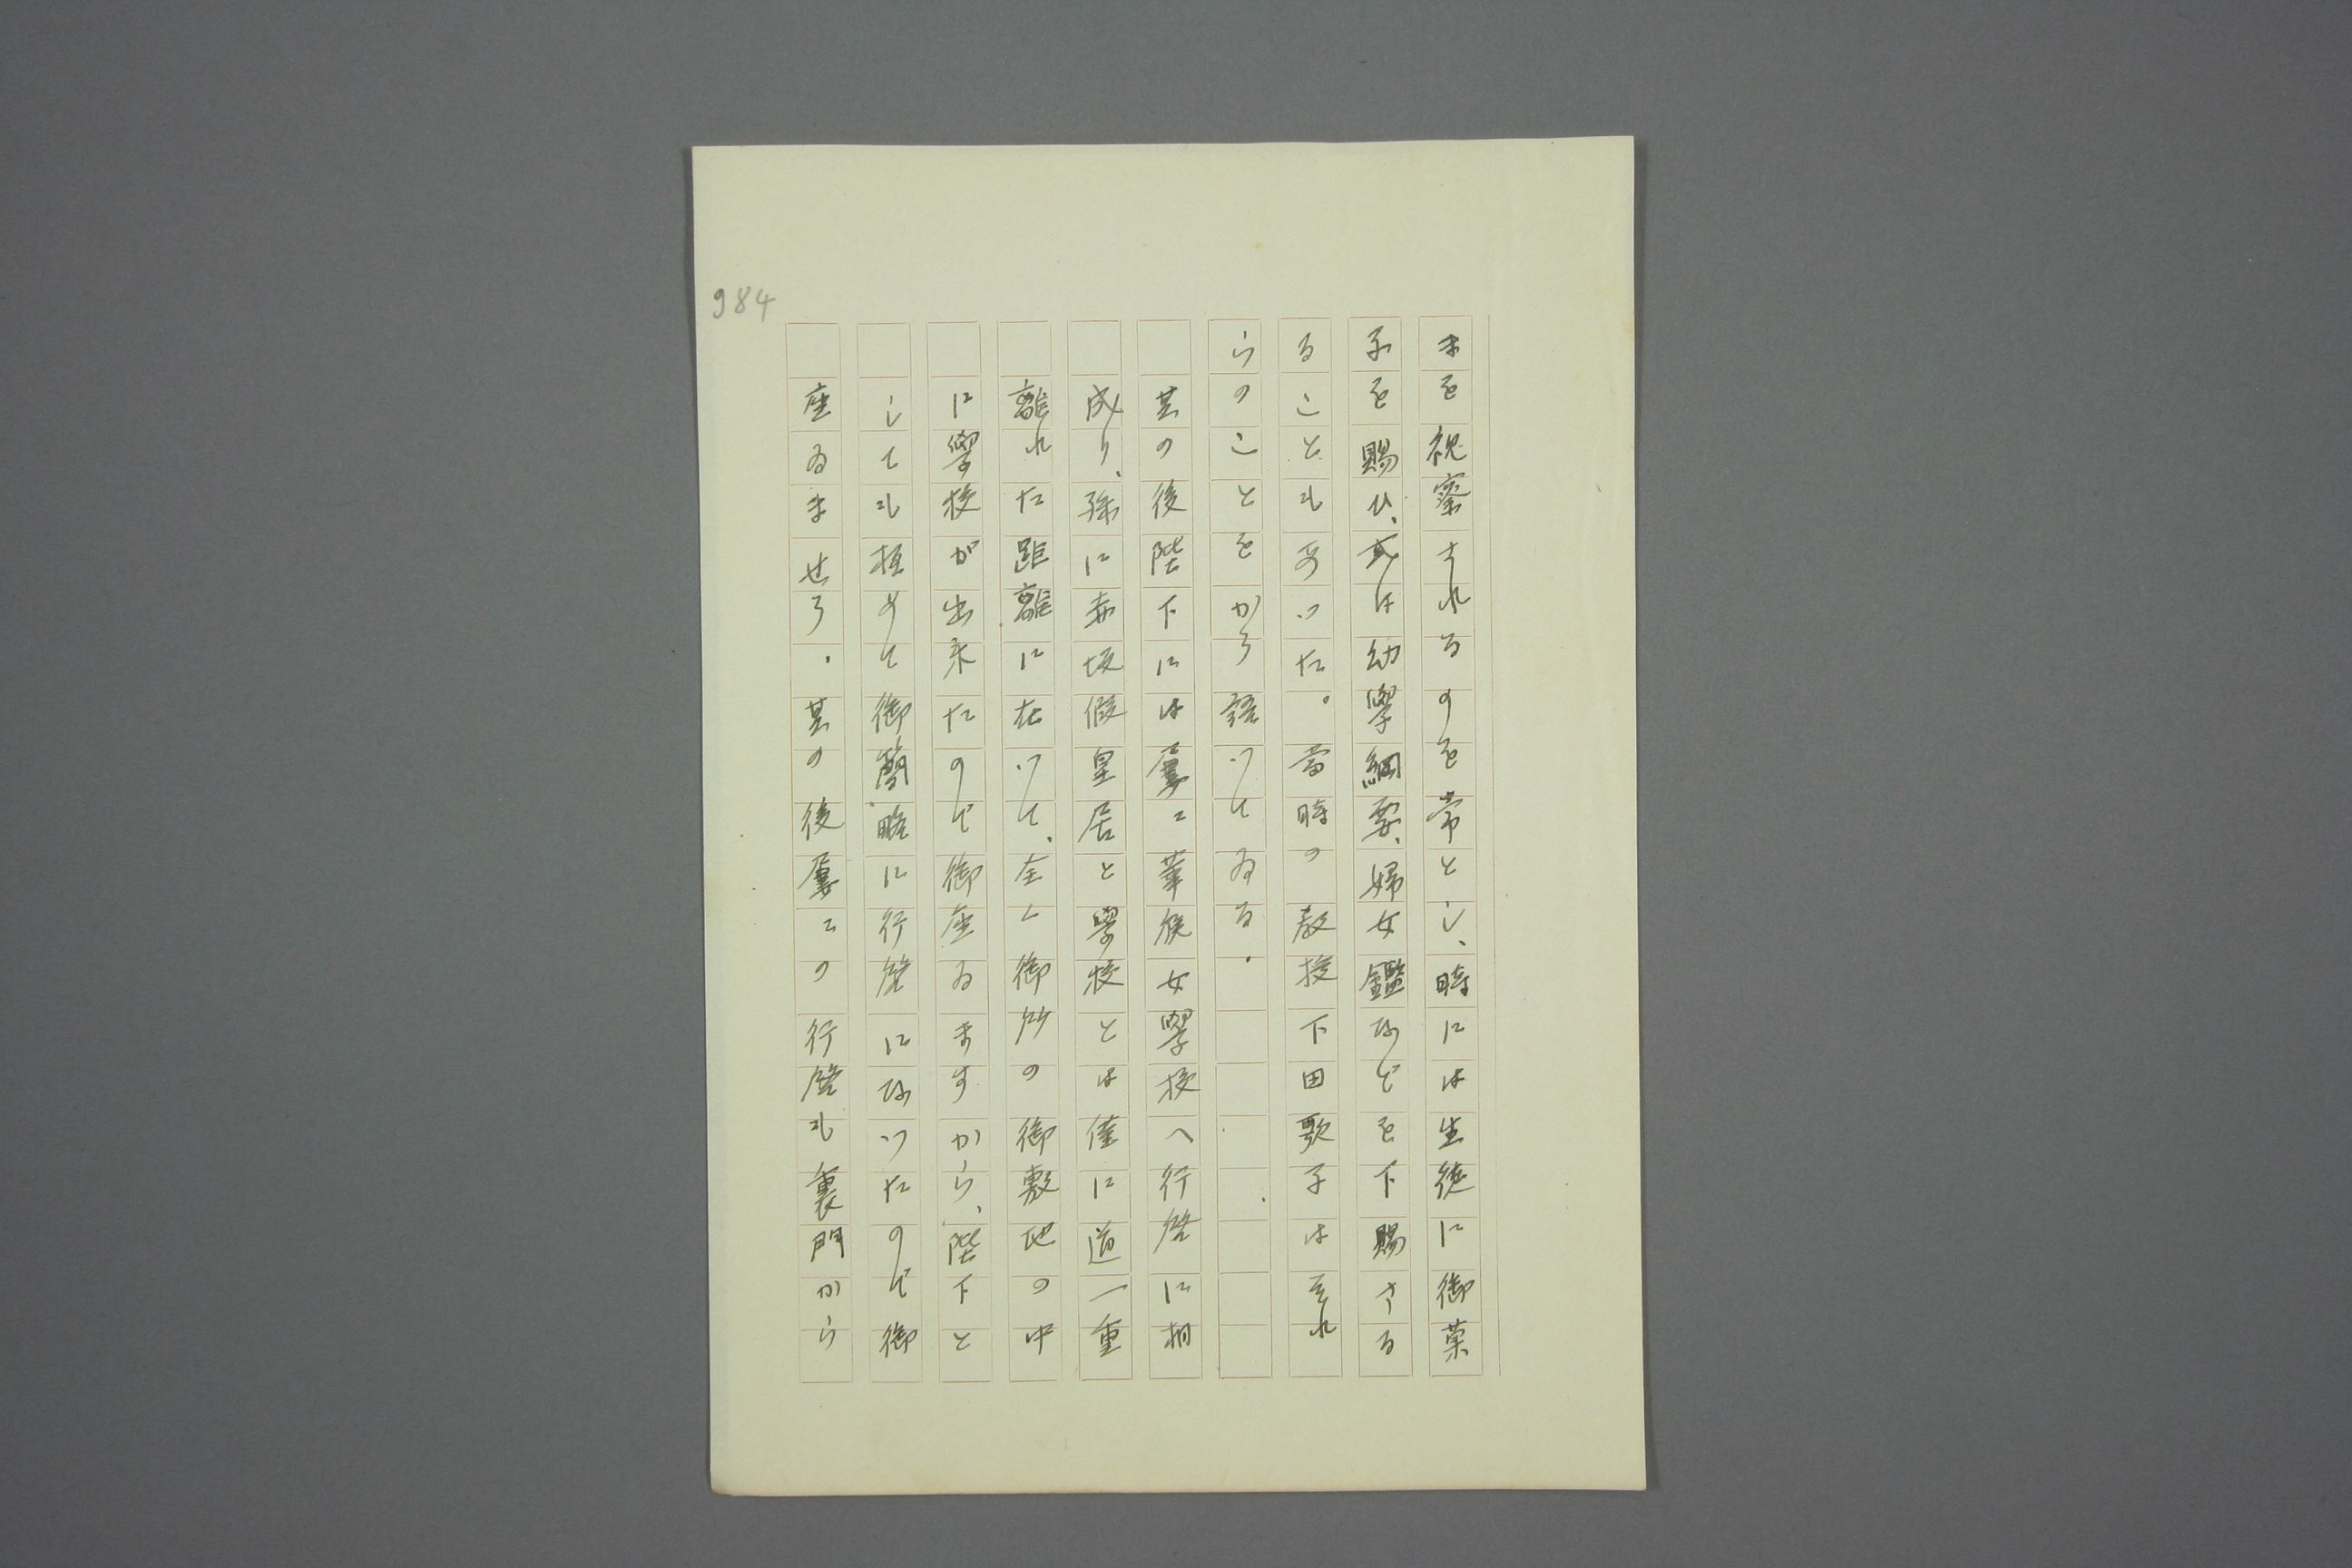 まを視察されるのを常とし、時には生徒に御菓
子を賜ひ、或は幼學綱要、婦女鑑などを下賜さる
ることもあつた。當時の教授下田歌子はそれ
らのことをかう語つてゐる。
其の後陛下には屢〻華族女學校へ行啓に相
成り、殊に赤坂假皇居と學校とは僅に道一重
離れた距離に在つて、全く御所の御敷地の中
に學校が出來たので御座ゐますから、陛下と
しても極めて御簡略に行啓になつたので御
座ゐませう。其の後屢〻の行啓も裏門から
984